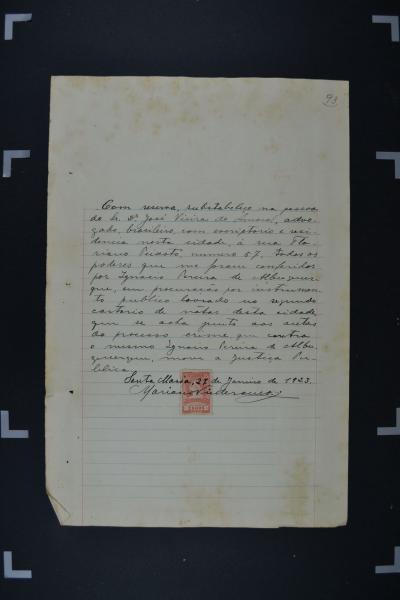 93
Com reserva, substabeleço na pessoa
do Sr. Dr. José Vieira do Amaral, advo-
gado, brasileiro, com escriptorio e resi-
dencia nesta cidade, á rua Flo-
riano Peixoto, numero 57, todos os
poderes que me foram conferidos
por Ignacio Pereira de Albuquer-
que, em procuração por instrumen-
to publico lavrado no segundo
cartorio de notas desta cidade,
que se acha junto aos autos
do processo crime que contra
o mesmo Ignacio Pereira de Albu-
querque, move a Justiça Pu-
blica.
Santa Maria, 27 de Janeiro de 1923.
Mariano